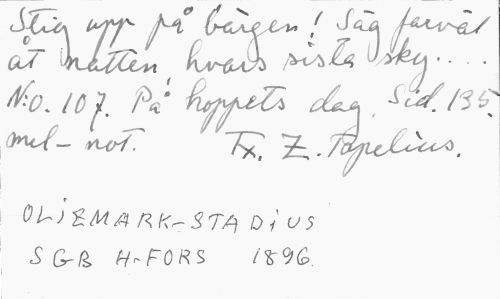 Stig upp på bärgen! Säg farväl
åt natten, hvars sista sky....
N:o. 107. På hoppets dag. Sid. 135.
mel-not. Tx. Z. Topelius.
OLIEMARK-STADIUS
SGB H-FORS 1896.